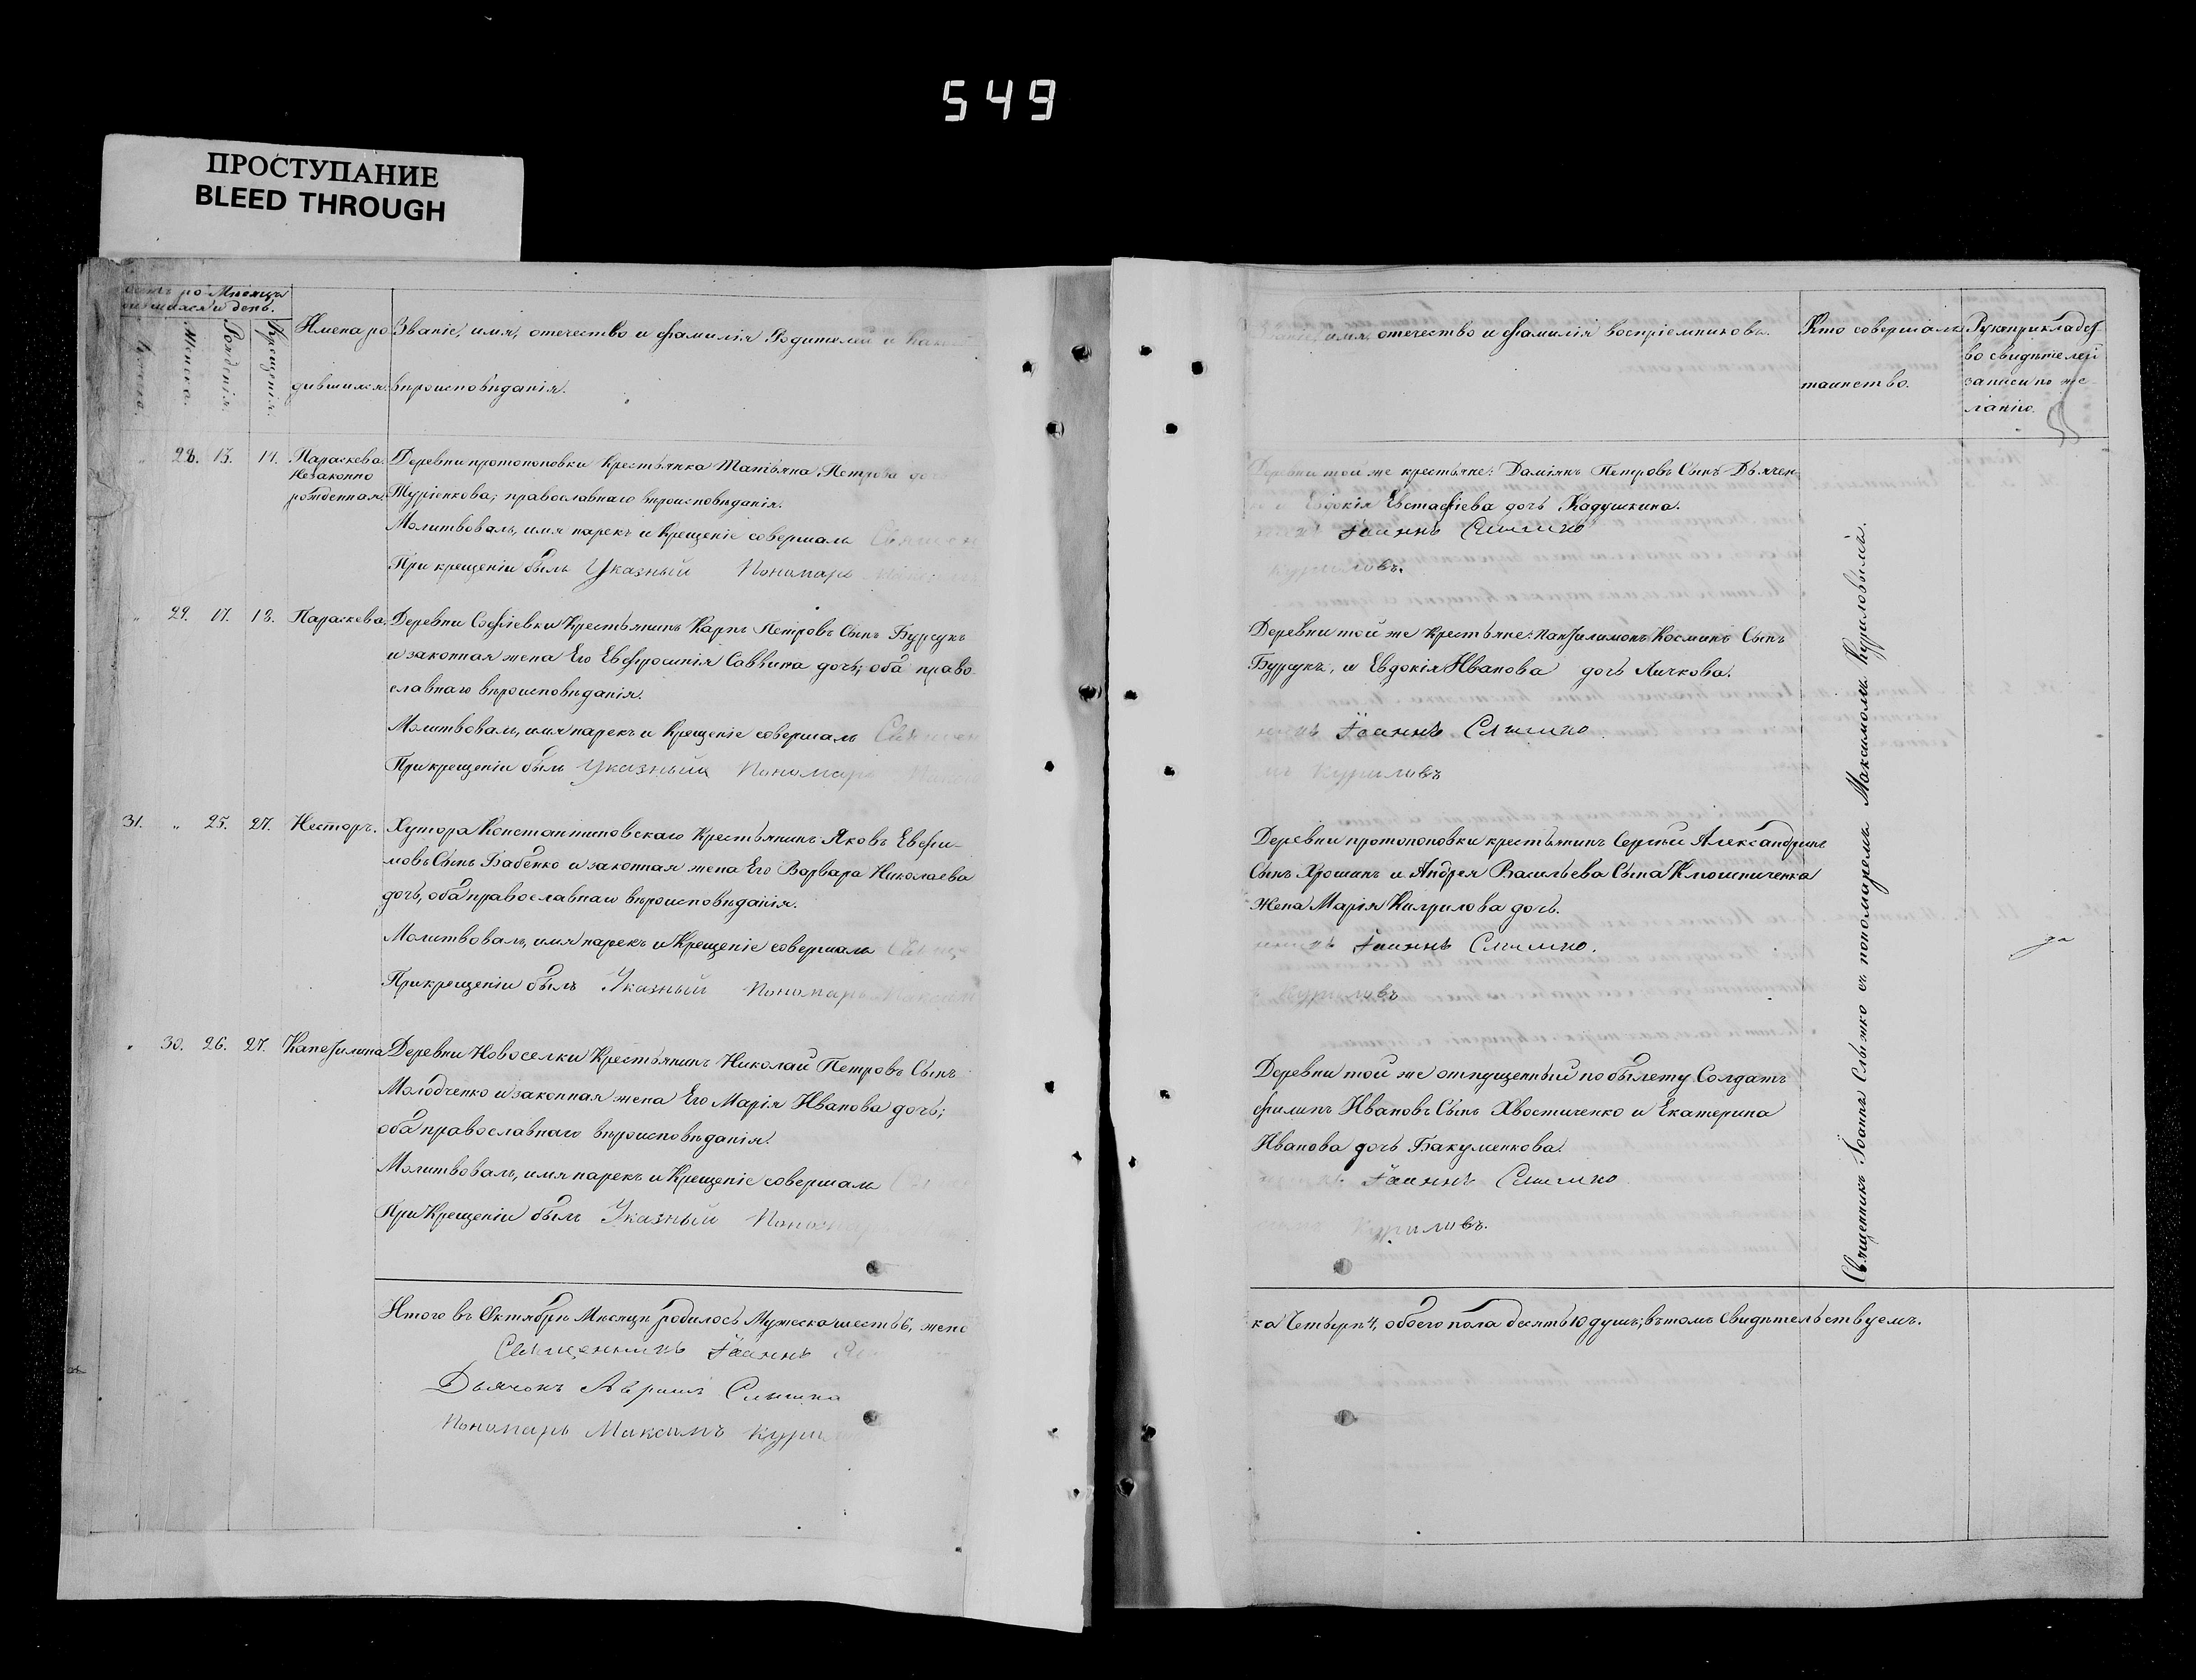 549
ПРОСТУПАНИЕ
BLEED THROUGH
Мѣсяцъ
и день.
Женска.
Рожденія.
Крещенія.
Имена ро
дившихся.
Званіе, имя, отечество и фамилія Родителей и какого
вѣроисповѣданія.
28. 13. 14. Параскева.
Незаконно
рожденная.
Деревни протопоповки Крестьянка Татьяна Петрова дочь
Туріенкова; православнаго вѣроисповѣданія.
Молитвовалъ, имя нарекъ и Крещеніе совершалъ Священ
При крещеніи былъ Указный Пономарь
29. 17. 18. Параскева.
Деревни Софіевки Крестьянинъ Карпъ Петровъ Сынъ Бурсукъ
и законная жена Его Евфросинія Саввина дочь; оба право-
славнаго вѣроисповѣданія.
Молитвовалъ, имя нарекъ и Крещеніе совершалъ Священ
При крещеніи былъ Указный Пономарь
31. " 25. 27. Несторъ.
Хутора Константиновскаго Крестьянинъ Яковъ Евфи-
мовъ Сынъ Бабенко и законная жена Его Варвара Николаева
дочь, оба православнаго вѣроисповѣданія.
Молитвовалъ, имя нарекъ и Крещеніе совершалъ
При крещеніи былъ Указный Пономарь Максим
" 30. 26. 27. Капетилина
Деревни Новоселки Крестьянинъ Николай Петровъ Сынъ
Молодченко и законная жена Его Марія Иванова дочь;
оба православнаго вѣроисповѣданія.
Молитвовалъ, имя нарекъ и Крещеніе совершалъ
При Крещеніи былъ Указный Пономарь
Итого въ Октябрѣ Мѣсяцѣ родилось Мужеска шесть 6, женс
Священникъ Іоаннъ
Дьячокъ Слышко
Пономарь Максимъ Кури
имя, отечество и фамилія воспріемниковъ.
Кто совершалъ
таинство.
Рукоприкладст-
во свидѣтелей
записи по же-
ланію.
Деревни той же крестьяне: Даміянъ Петровъ Сынъ Дьячен-
и Евдокія Евстафіева дочь Кадушкина.
Іоаннъ Слышко
Куриловъ.
Деревни той же Крестьяне: Пантилимонъ Косминъ Сынъ
Бурсукъ, и Евдокія Иванова дочь Личкова.
Іоаннъ Слышко.
Куриловъ
Деревни протопоповки крестьянинъ Сергѣй Александринъ
Сынъ Хрошинъ и Андрея Васильева Сына Клюшниченка
Жена Марія Кирилова дочь.
Іоаннъ Слышко.
Куриловъ
Деревни той же отпущенный по былету Солдатъ
филипъ Ивановъ Сынъ Хвостиченко и Екатерина
Иванова дочь Бакуменкова.
Іоаннъ Слышко
Куриловъ.
Священникъ Іоаннъ Слышко съ пономаремъ Максимомъ Куриловымъ.
ка Четыри 4, обоего пола десять 10 душъ; въ томъ Свидѣтельствуемъ.